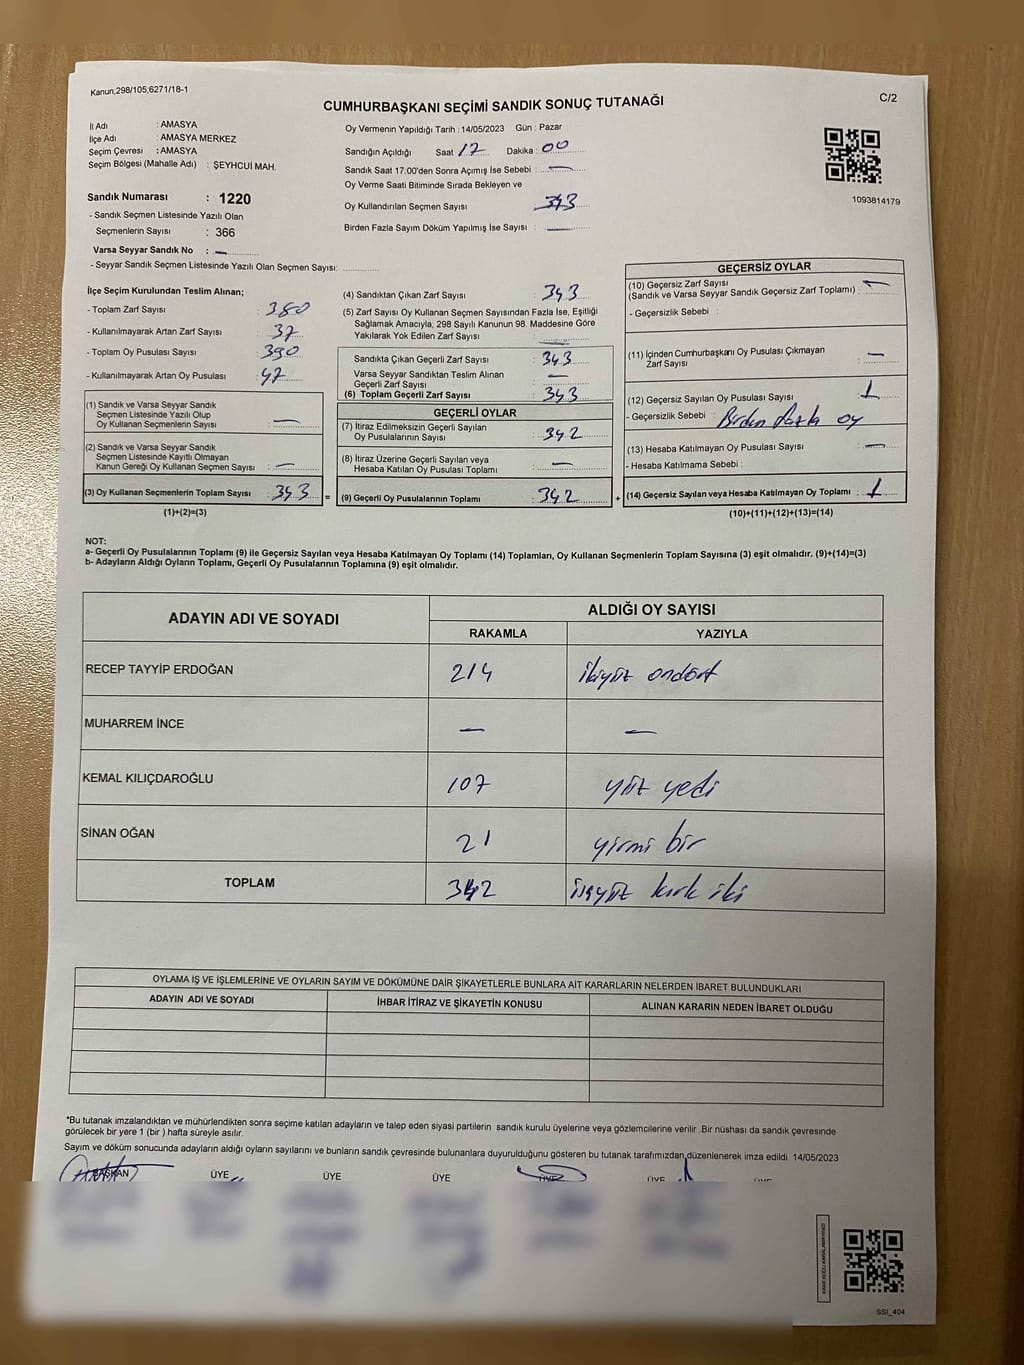 Kanun,298/105;6271/18-1
CUMHURBAŞKANI SEÇİMİ SANDIK SONUÇ TUTANAĞI
C/2
İl Adı : AMASYA
İlçe Adı : AMASYA MERKEZ
Seçim Çevresi : AMASYA
Seçim Bölgesi (Mahalle Adı) : ŞEYHCUİ MAH.
Sandık Numarası : 1220
- Sandık Seçmen Listesinde Yazılı Olan
Seçmenlerin Sayısı : 366
Varsa Seyyar Sandık No : —
- Seyyar Sandık Seçmen Listesinde Yazılı Olan Seçmen Sayısı:
Oy Vermenin Yapıldığı Tarih : 14/05/2023 Gün : Pazar
Sandığın Açıldığı Saat 17 Dakika : 00
Sandık Saat 17:00'den Sonra Açımış İse Sebebi : —
Oy Verme Saati Bitiminde Sırada Bekleyen ve
Oy Kullandırılan Seçmen Sayısı 343
Birden Fazla Sayım Döküm Yapılmış İse Sayısı : —
1093814179
İlçe Seçim Kurulundan Teslim Alınan;
- Toplam Zarf Sayısı : 380
- Kullanılmayarak Artan Zarf Sayısı : 37
- Toplam Oy Pusulası Sayısı : 390
- Kullanılmayarak Artan Oy Pusulası : 47
(1) Sandık ve Varsa Seyyar Sandık
Seçmen Listesinde Yazılı Olup
Oy Kullanan Seçmenlerin Sayısı : —
(2) Sandık ve Varsa Seyyar Sandık
Seçmen Listesinde Kayıtlı Olmayan
Kanun Gereği Oy Kullanan Seçmen Sayısı : —
(3) Oy Kullanan Seçmenlerin Toplam Sayısı : 343 =
(1)+(2)=(3)
(4) Sandıktan Çıkan Zarf Sayısı : 343
(5) Zarf Sayısı Oy Kullanan Seçmen Sayısından Fazla İse, Eşitliği
Sağlamak Amacıyla, 298 Sayılı Kanunun 98. Maddesine Göre
Yakılarak Yok Edilen Zarf Sayısı : —
Sandıkta Çıkan Geçerli Zarf Sayısı : 343
Varsa Seyyar Sandıktan Teslim Alınan
Geçerli Zarf Sayısı : —
(6) Toplam Geçerli Zarf Sayısı : 343
GEÇERLİ OYLAR
(7) İtiraz Edilmeksizin Geçerli Sayılan
Oy Pusulalarının Sayısı : 342
(8) İtiraz Üzerine Geçerli Sayılan veya
Hesaba Katılan Oy Pusulası Toplamı : —
(9) Geçerli Oy Pusulalarının Toplamı : 342 +
GEÇERSİZ OYLAR
(10) Geçersiz Zarf Sayısı
(Sandık ve Varsa Seyyar Sandık Geçersiz Zarf Toplamı) : —
- Geçersizlik Sebebi :
(11) İçinden Cumhurbaşkanı Oy Pusulası Çıkmayan
Zarf Sayısı : —
(12) Geçersiz Sayılan Oy Pusulası Sayısı : 1
- Geçersizlik Sebebi : Birden fazla oy
(13) Hesaba Katılmayan Oy Pusulası Sayısı : —
- Hesaba Katılmama Sebebi :
(14) Geçersiz Sayılan veya Hesaba Katılmayan Oy Toplamı : 1
(10)+(11)+(12)+(13)=(14)
NOT:
a- Geçerli Oy Pusulalarının Toplamı (9) ile Geçersiz Sayılan veya Hesaba Katılmayan Oy Toplamı (14) Toplamları, Oy Kullanan Seçmenlerin Toplam Sayısına (3) eşit olmalıdır. (9)+(14)=(3)
b- Adayların Aldığı Oyların Toplamı, Geçerli Oy Pusulalarının Toplamına (9) eşit olmalıdır.
ADAYIN ADI VE SOYADI ALDIĞI OY SAYISI
RAKAMLA YAZIYLA
RECEP TAYYİP ERDOĞAN 214 ikiyüz ondört
MUHARREM İNCE — —
KEMAL KILIÇDAROĞLU 107 yüz yedi
SİNAN OĞAN 21 yirmi bir
TOPLAM 342 üçyüz kırk iki
OYLAMA İŞ VE İŞLEMLERİNE VE OYLARIN SAYIM VE DÖKÜMÜNE DAİR ŞİKAYETLERLE BUNLARA AİT KARARLARIN NELERDEN İBARET BULUNDUKLARI
ADAYIN ADI VE SOYADI İHBAR İTİRAZ VE ŞİKAYETİN KONUSU ALINAN KARARIN NEDEN İBARET OLDUĞU
*Bu tutanak imzalandıktan ve mühürlendikten sonra seçime katılan adayların ve talep eden siyasi partilerin sandık kurulu üyelerine veya gözlemcilerine verilir .Bir nüshası da sandık çevresinde
görülecek bir yere 1 (bir ) hafta süreyle asılır.
Sayım ve döküm sonucunda adayların aldığı oyların sayılarını ve bunların sandık çevresinde bulunanlara duyurulduğunu gösteren bu tutanak tarafımızdan düzenlenerek imza edildi 14/05/2023
BAŞKAN ÜYE ÜYE ÜYE ÜYE ÜYE
SSI_404